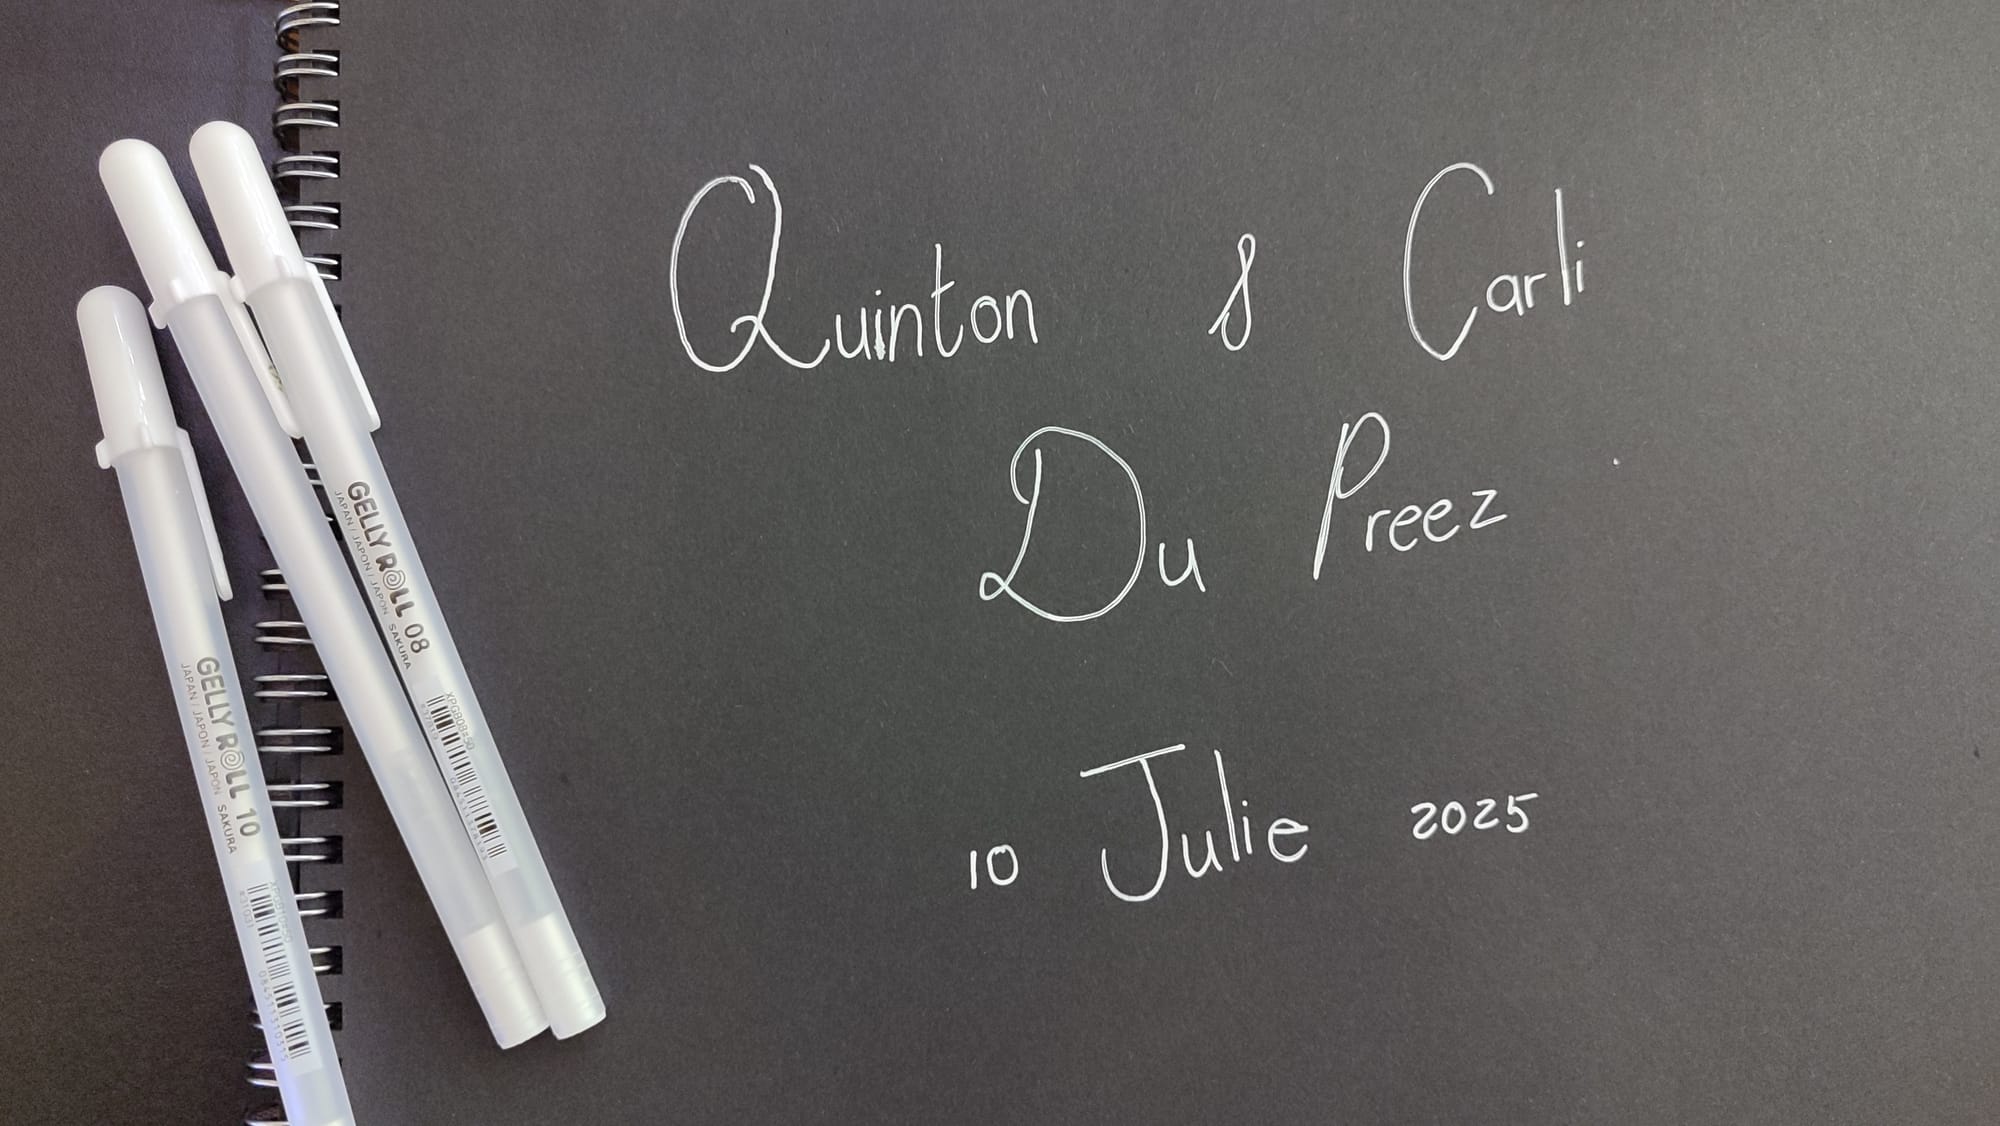 Quinton & Carli
Du Preez
10 Julie 2025
GELLY ROLL 08
JAPAN / JAPON / JAPÓN SAKURA
XPGB08#50
#37419
084511374193
GELLY ROLL 10
JAPAN / JAPON / JAPÓN SAKURA
XPGB10#50
#31031
084511310315